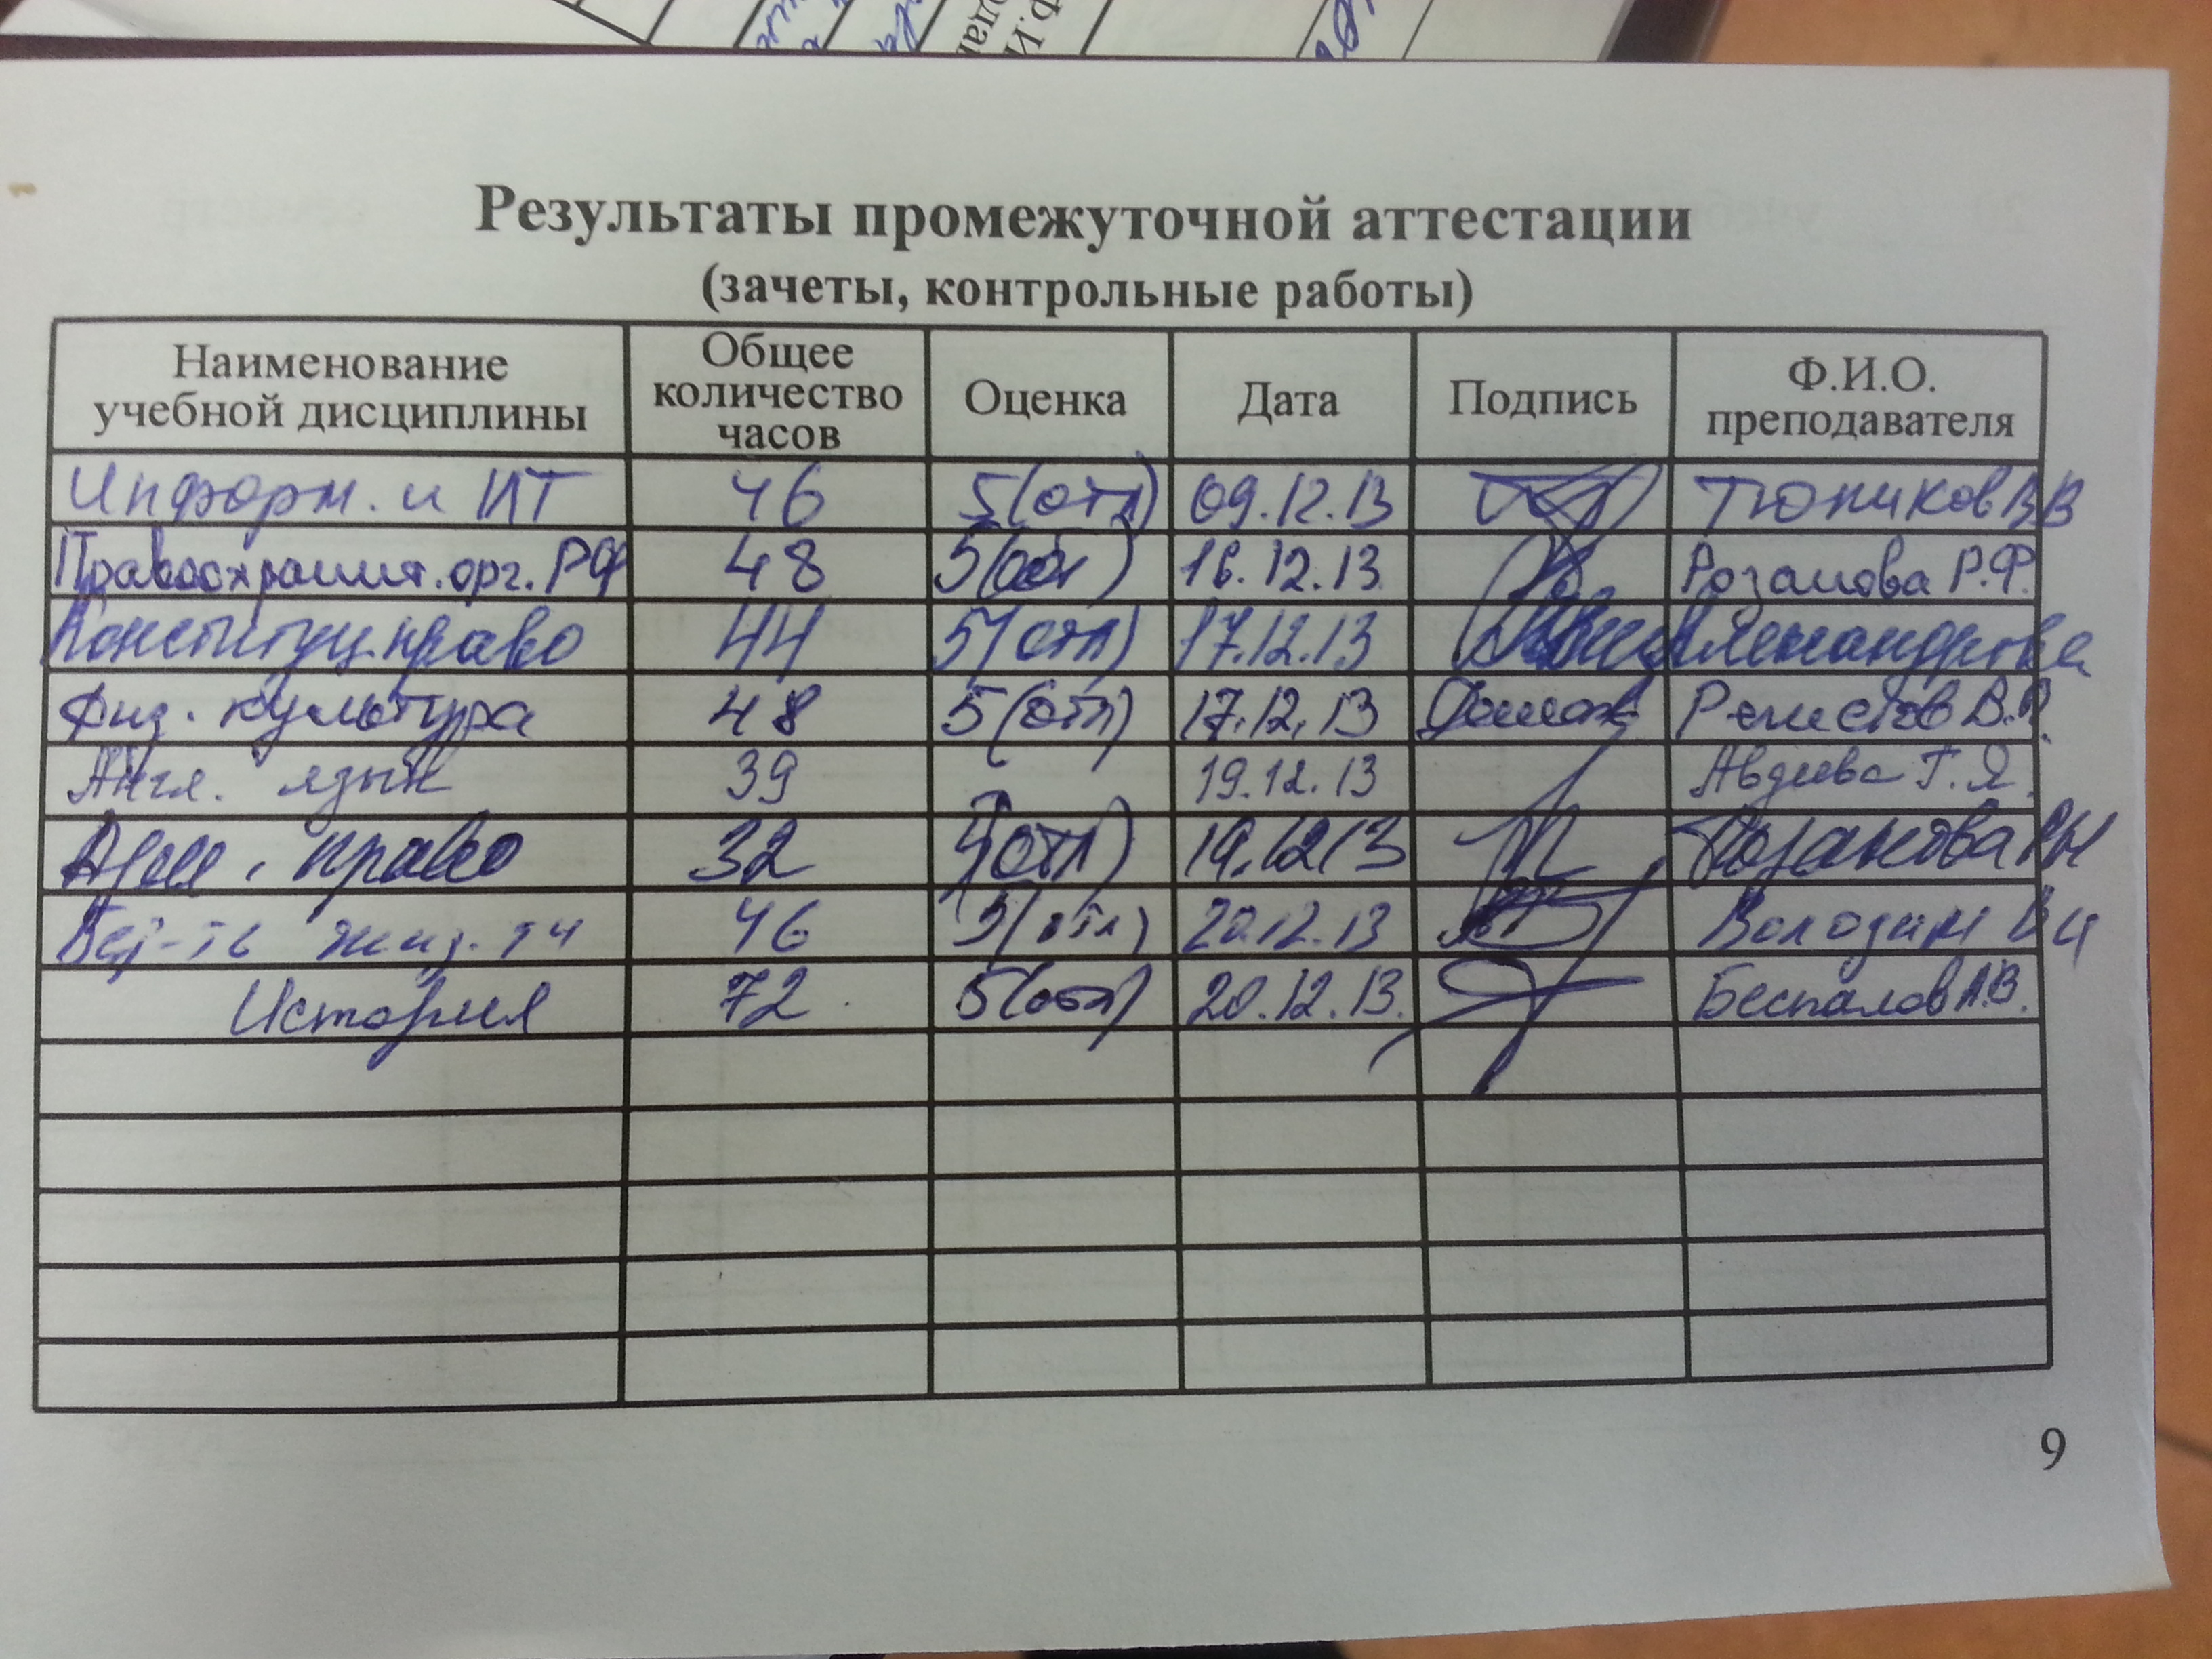 Результаты промежуточной аттестации
(зачеты, контрольные работы)
Наименование учебной дисциплины Общее количество часов Оценка Дата Подпись Ф.И.О. преподавателя
Информ. и ИТ 46 5(отл) 09.12.13 Тюпиков В.В
Правоохранит. орг. РФ 48 5(отл) 16.12.13 Розанова Р.Ф.
Конституц. право 44 5(отл) 17.12.13 Александрова
Физ. культура 48 5(отл) 17.12.13 В.
Англ. язык 39 19.12.13 Авдеева Г.Я.
Адм. право 32 (отл) 19.12.13 Розанова
Без-ть жизд. 46 5(отл) 20.12.13 Володин
История 72 5(отл) 20.12.13. Беспалов А.В.
9